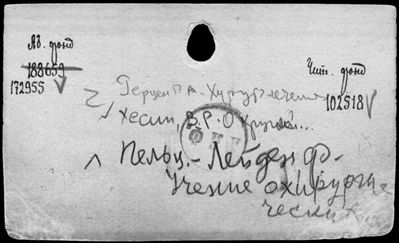 Яв. фонд
188659
172955
Чит. фонд
102518
Герцен П. А. Хирург. лечение
Хесин, В. Р. О хирургич...
Пельц.-Лейден Ф.
Учение о хирурги-
ческих